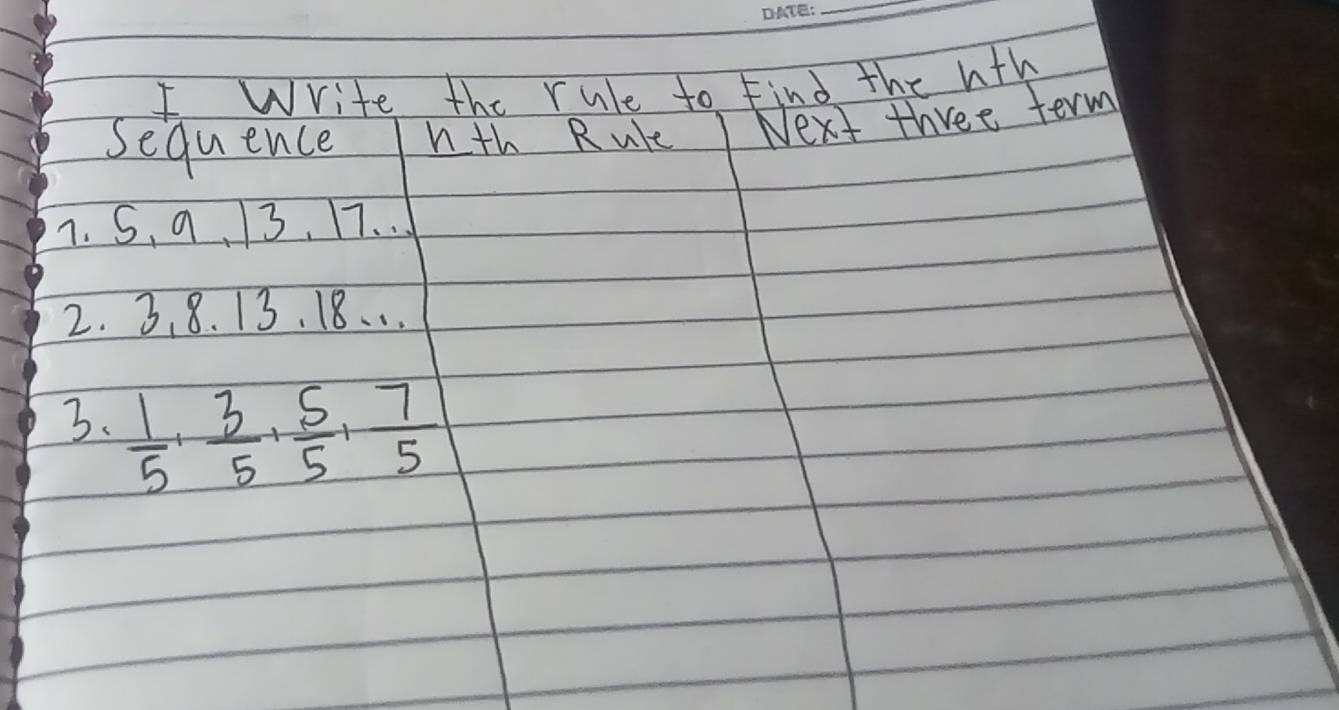 DATE:
I Write the rule to Find the nth
Sequence nth Rule Next three term
1. 5, 9, 13, 17...
2. 3, 8, 13, 18...
3. 1/5, 3/5, 5/5, 7/5